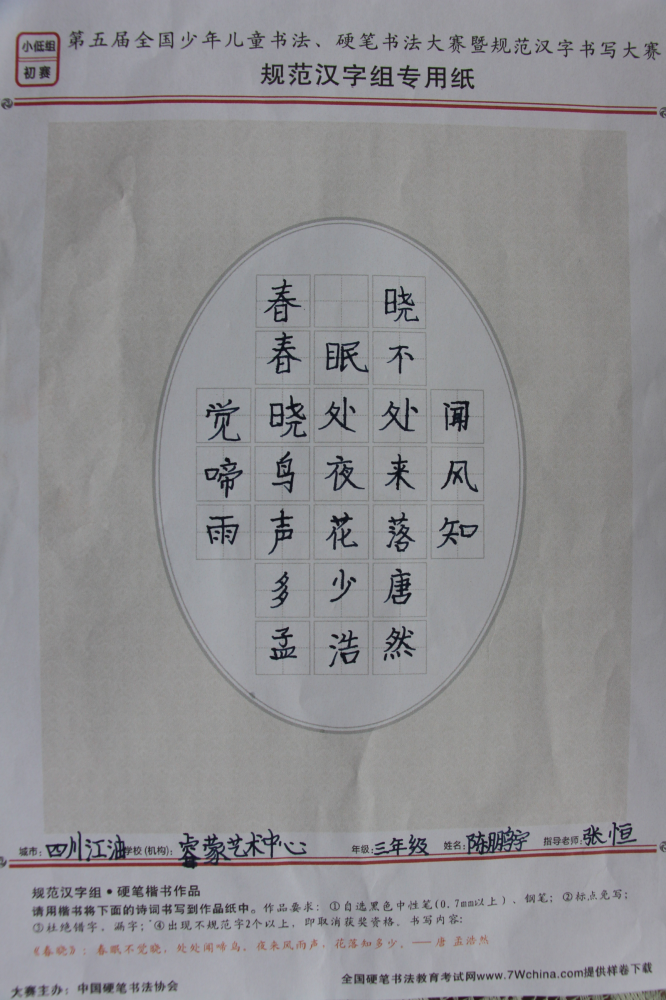 小低组
初赛
第五届全国少年儿童书法、硬笔书法大赛暨规范汉字书写大赛
规范汉字组专用纸
春 晓
春眠不
觉晓处处闻
啼鸟夜来风
雨声花落知
多少唐
孟浩然
城市：四川江油 学校(机构)：睿蒙艺术中心 年级：三年级 姓名：陈鹏宇 指导老师：张恒
规范汉字组·硬笔楷书作品
请用楷书将下面的诗词书写到作品纸中。作品要求：①自选黑色中性笔(0.7mm以上)、钢笔；②标点免写；
③杜绝错字，漏字；④出现不规范字2个以上，即取消获奖资格。书写内容：
《春晓》：春眠不觉晓，处处闻啼鸟，夜来风雨声，花落知多少。——唐 孟浩然
大赛主办：中国硬笔书法协会 全国硬笔书法教育考试网www.7Wchina.com提供样卷下载